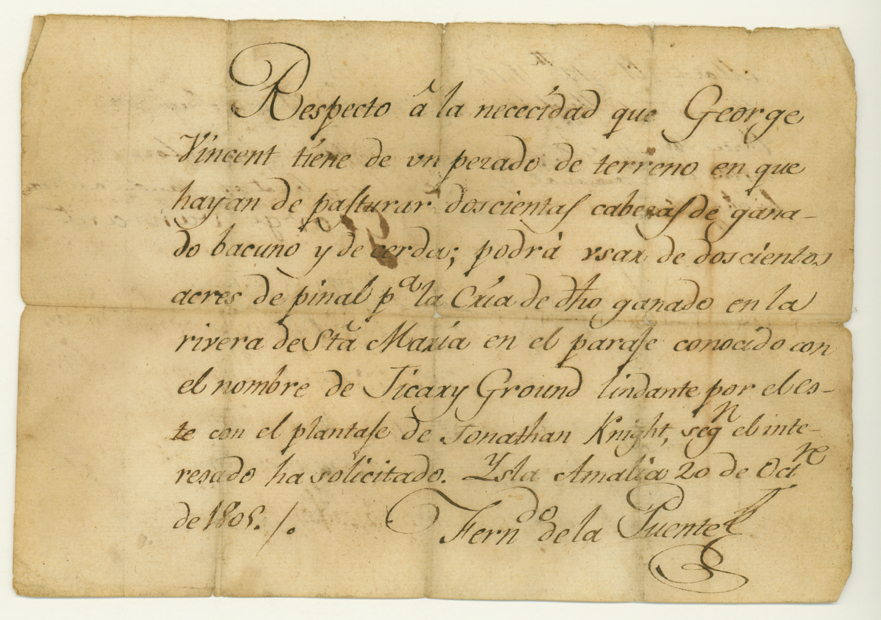 Respecto â la nececidad que George
Vincent tiene de vn pezado de terreno en que
hayan de pasturar doscientas cabezas de gana-
do bacuno y de cerda; podrá vsar de doscientos
acres de pinal pª la Cria de dho ganado en la
rivera de Stª Maria en el paraje conocido con
el nombre de Ticaxy Ground lindante por el es-
te con el plantaje de Jonathan Knight, segn el inte-
resado ha solicitado. Ysla Amalia 20 de Octre
de 1805./.
Ferndo de la Puente